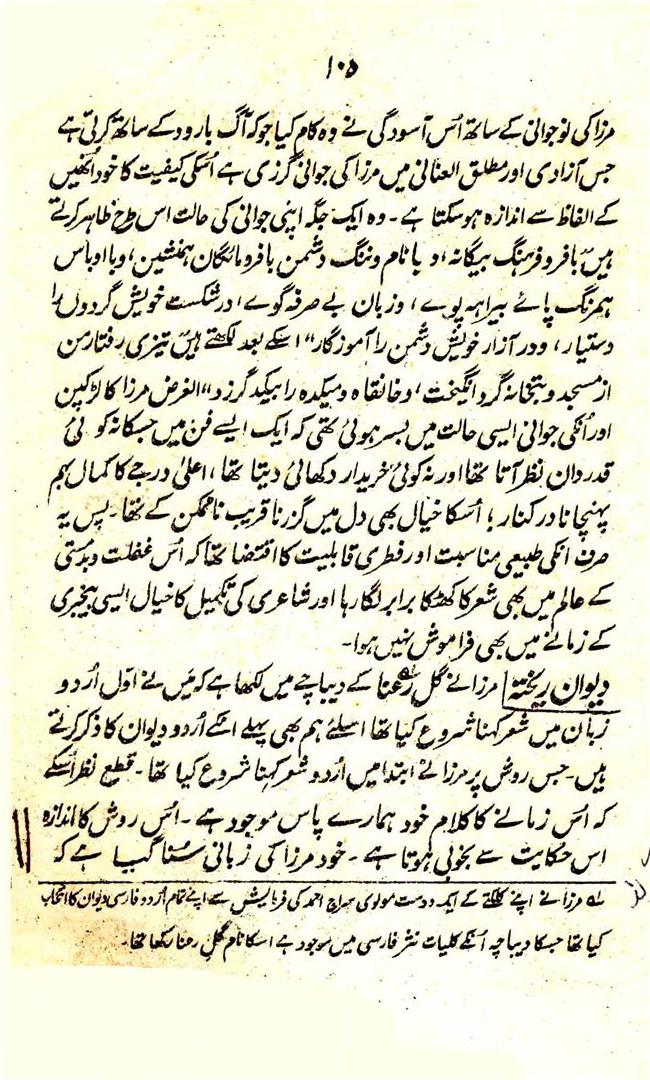 ۱۰۵
مرزا کی نوجوانی کے ساتھ اُس آسودگی نے وہ کام کیا جو کہ آگ بارود کے ساتھ کرتی ہے
جس آزادی اور مطلق العنانی میں مرزا کی جوانی گزری ہے اُسکی کیفیت کا خود اُنھیں
کے الفاظ سے اندازہ ہو سکتا ہے۔ وہ ایک جگہ اپنی جوانی کی حالت اس طرح ظاہر کرتے
ہیں "با فر و فرہنگ بیگانہ، و با نام و ننگ دشمن با فرومایگان ہمنشین، و با اوباش
ہمرنگ پاے بیراہہ پوے، و زبان بے صرفہ گوے، در شکست خویش گردوں را
دستیار، و در آزار خویش دشمن را آموزگار" اسکے بعد لکھتے ہیں "تیزی رفتار من
از مسجد و بتخانہ گرد انگیخت، و خانقاہ و میکدہ را بیکدگر زد" الغرض مرزا کا لڑکپن
اور اُنکی جوانی ایسی حالت میں بسر ہوئی تھی کہ ایک ایسے فن میں جسکا نہ کوئی
قدردان نظر آتا تھا اور نہ کوئی خریدار دکھائی دیتا تھا، اعلیٰ درجے کا کمال بہم
پہنچانا درکنار؛ اُسکا خیال بھی دل میں گزرنا قریب ناممکن کے تھا۔ پس یہ
صرف انکی طبیعی مناسبت اور فطری قابلیت کا اقتضا تھا کہ اُس غفلت و بدمستی
کے عالم میں بھی شعر کا کھٹکا برابر لگا رہا اور شاعری کی تکمیل کا خیال ایسی بیخبری
کے زمانے میں بھی فراموش نہیں ہوا۔
دیوان ریختہ مرزا نے گل رعنا کے دیباچے میں لکھا ہے کہ میں نے اوّل اُردو
زبان میں شعر کہنا شروع کیا تھا اسلئے ہم بھی پہلے انکے اُردو دیوان کا ذکر کرتے
ہیں۔ جس روش پر مرزا نے ابتدا میں اُردو شعر کہنا شروع کیا تھا۔ قطع نظر اُسکے
کہ اُس زمانے کا کلام خود ہمارے پاس موجود ہے۔ اُس روش کا اندازہ
اس حکایت سے بخوبی ہوتا ہے۔ خود مرزا کی زبانی سُنا گیا ہے کہ
لہ مرزا نے اپنے کلکتے کے ایک دوست مولوی سراج احمد کی فرمایش سے اپنے تمام اُردو فارسی دیوان کا انتخاب
کیا تھا جسکا دیباچہ اُنکے کلیات نثر فارسی میں موجود ہے اسکا نام گل رعنا رکھا تھا۔